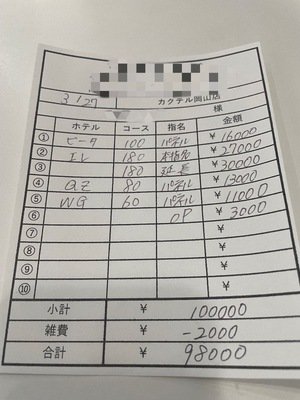 3/27
カクテル岡山店
様
ホテル コース 指名 金額
① ピータ 100 パネル ¥16000
② エレ 180 本指名 ¥27000
③ 180 延長 ¥30000
④ QZ 80 パネル ¥13000
⑤ WG 60 パネル ¥11000
⑥ OP ¥3000
⑦ ¥
⑧ ¥
⑨ ¥
⑩ ¥
小計 ¥ 100000
雑費 ¥ -2000
合計 ¥ 98000